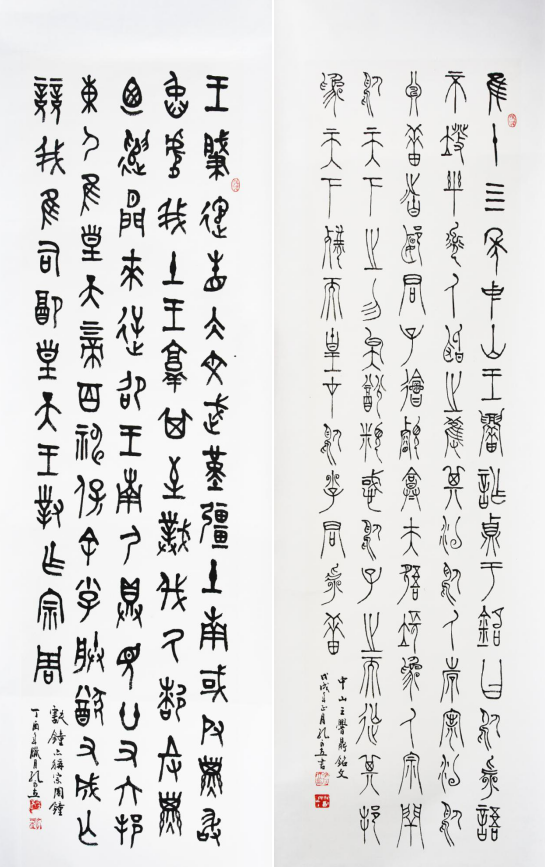 隹十四年中山王譽詐貞于銘曰於虖語
不廢哉寡人聞之蒦其汋於人也寧汋於
淵昔者郾君子噲叡弇夫悟長為人宗閈
於天下之勿矣猶迷惑於子之而亡其邦
為天下戮而皇才於少君虖
中山王譽鼎銘文
戊戌年正月孔書
王肈遹省文武堇疆土南或𠬝孳敢
臽虐我土王敦伐其至撲伐厥都𠬝孳
廼遣閒來逆卲王南尸具見廿又六邦
東尸隹皇天帝百神保余小子朕猷又成亡
競我隹司配皇天王對乍宗周
㝬鐘亦稱宗周鐘
丁酉年臘月孔